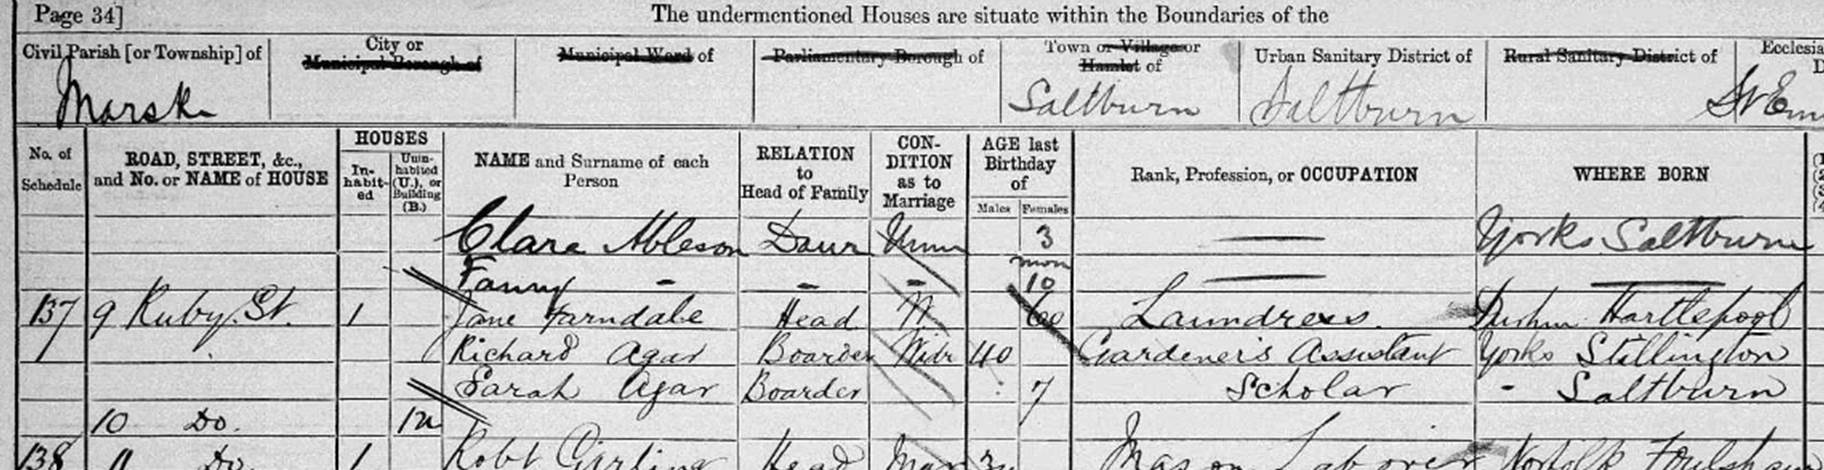 Page 34] The undermentioned Houses are situate within the Boundaries of the
Civil Parish [or Township] of City or Municipal Borough of Municipal Ward of Parliamentary Borough of Town or Village or Hamlet of Urban Sanitary District of Rural Sanitary District of Ecclesia
Marske Saltburn Saltburn St Em
No. of Schedule ROAD, STREET, &c., and No. or NAME of HOUSE HOUSES In-habit-ed Unin-habited (U.), or Building (B.) NAME and Surname of each Person RELATION to Head of Family CON-DITION as to Marriage AGE last Birthday of Males Females Rank, Profession, or OCCUPATION WHERE BORN
Clara Ableson Daur Unm 3 Yorks Saltburn
Fanny - - - mon 10
137 9 Ruby St. 1 Jane Farndale Head 60 Laundress. Durhm Hartlepool
Richard Agar Boarder Widr 40 Gardener's Assistant Yorks Stillington
Sarah Agar Boarder 7 Scholar - Saltburn
10 Do. 1u
138 11 Do. 1 Robt Girling Head Mar Mason Laborer Norfolk